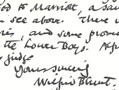 to Marriott, a sa
see above. There w
is, and some prom
the Lower Boys. A
judge
Yours sincerely
Wilfrid Blunt.